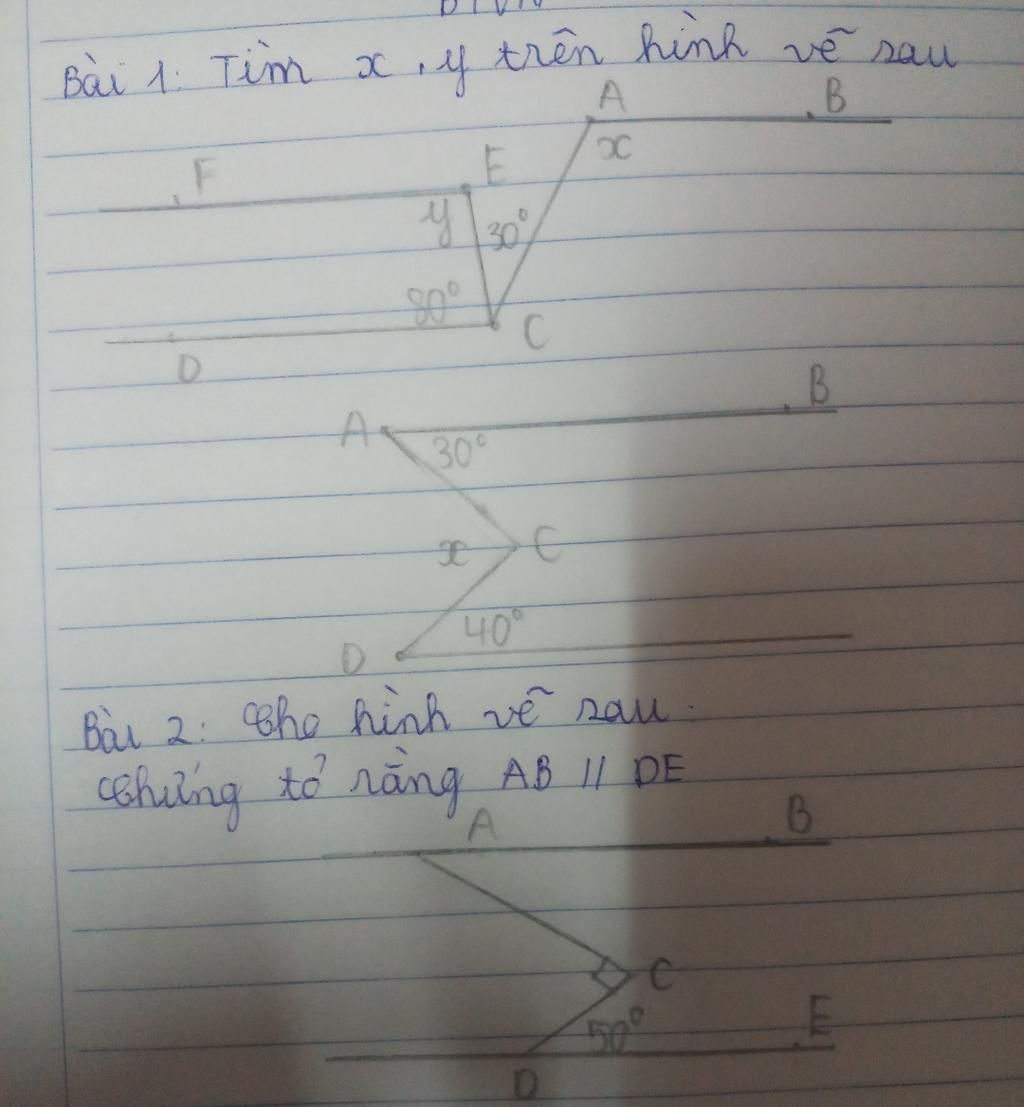 BTVN
Bài 1: Tìm x, y trên hình vẽ sau
A B
x
F E
y 30°
80°
D C
A B
30°
x C
D 40°
Bài 2: Cho hình vẽ sau.
Chứng tỏ rằng AB // DE
A B
C
50° E
D